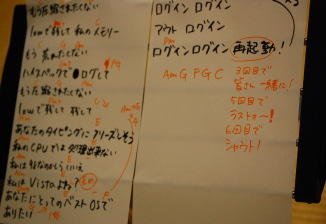 もう圧縮されたくない
lowで残して 私のメモリー
もう 荒れたくない
ハイスペックで ログして
もう圧縮されたくない
lowで残して 残して
あなたのタイピングに フリーズしそう
私のCPUでは 処理出来ない
私は
私はVistaよね?
あなたにとってのベストOSで
ありたい
ログイン ログイン
アウト ログイン
ログイン ログイン 再起動!
Am G F G C
3回目で
皆さん一緒に!
5回目で
ラスト〜!
6回目で
シャウト!